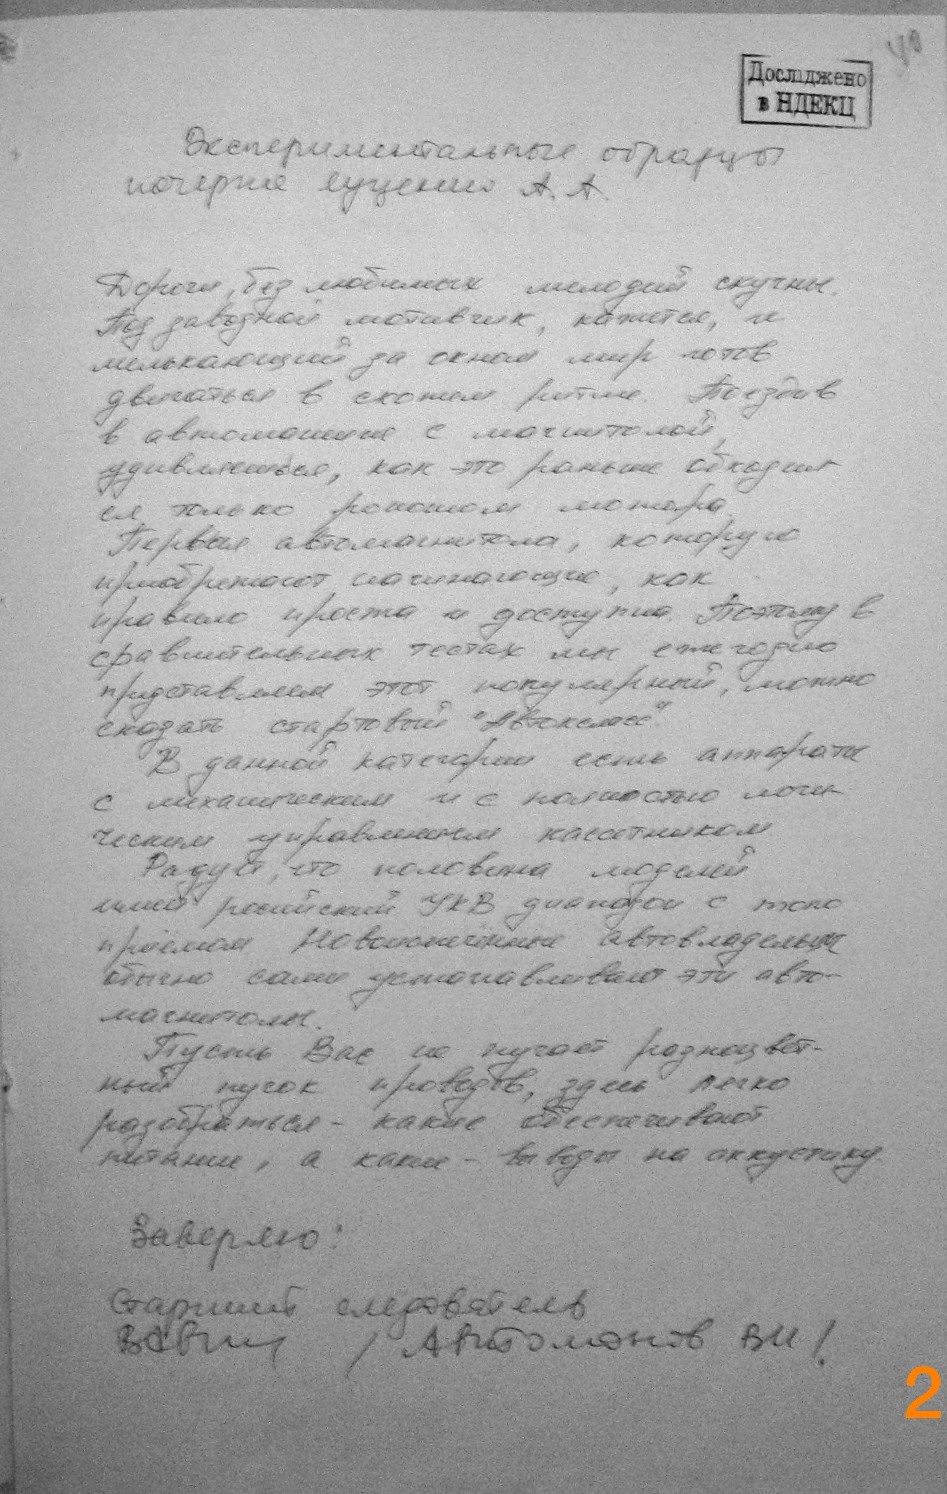 40
Досліджено
в НДЕКЦ
Экспериментальные образцы
почерка Луценко А.А.
Дороги, без любимых мелодий скучны.
Под заводной мотивчик, кажется, и
мелькающий за окном мир готов
двигаться в схожем ритме. Поездив
в автомашине с магнитолой,
удивляешься, как это раньше обходил
ся только рокотом мотора.
Первая автомагнитола, которую
приобретают начинающие, как
правило проста и доступна. Поэтому в
сравнительных тестах мы ежегодно
представляем этот популярный, можно
сказать стартовый "Автокласс".
В данной категории есть аппараты
с механическим и с полностью логи-
ческим управлением кассетником
Радует, что половина моделей
имеет российский УКВ диапазон с моно
приёмом Новоиспечённые автовладельцы
обычно сами устанавливают эти авто-
магнитолы.
Пусть Вас не пугает разноцвет-
ный пучок проводов, здесь легко
разобраться - какие обеспечивают
питание, а какие - выводы на аккустику
Заверяю:
Старший следователь
/ Автомонов ВИ/.
2